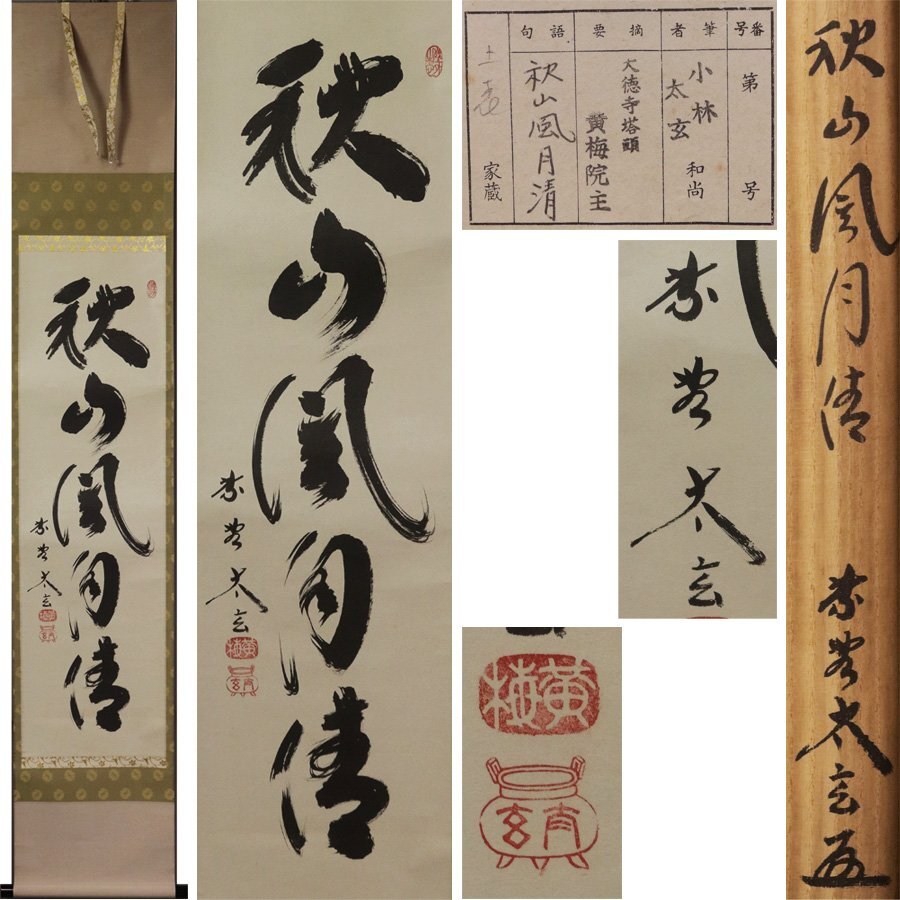 秋山風月清
紫野太玄
秋山風月清
紫野太玄
黄梅
番号
第 号
筆者
小林
太玄
和尚
摘要
大徳寺塔頭
黄梅院主
語句
秋山風月清
家蔵
紫野太玄
黄梅
秋山風月清
紫野太玄